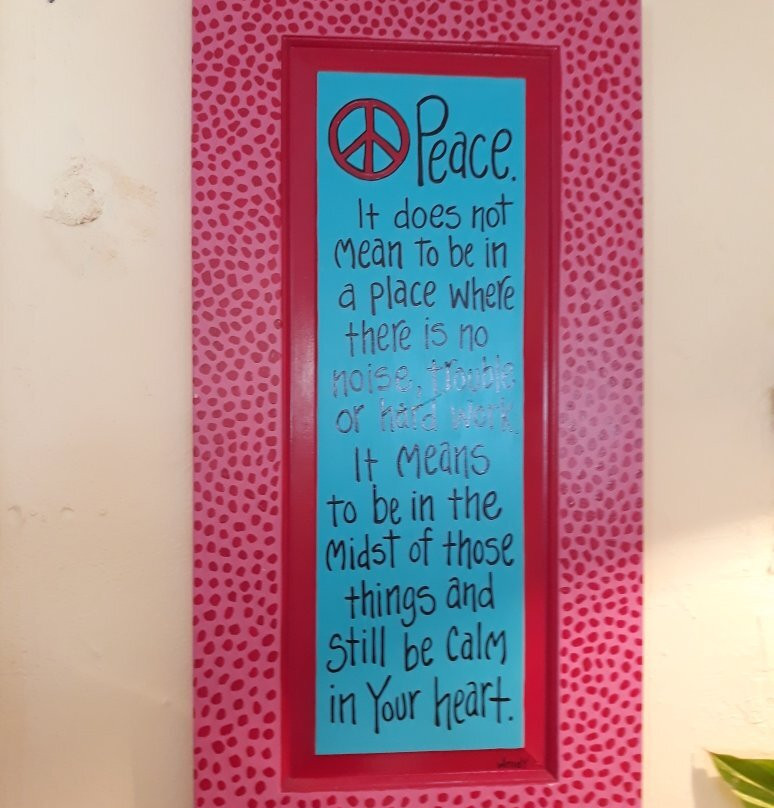 Peace.
It does not
mean to be in
a place where
there is no
noise, trouble
or hard work.
It means
to be in the
midst of those
things and
still be calm
in Your heart.